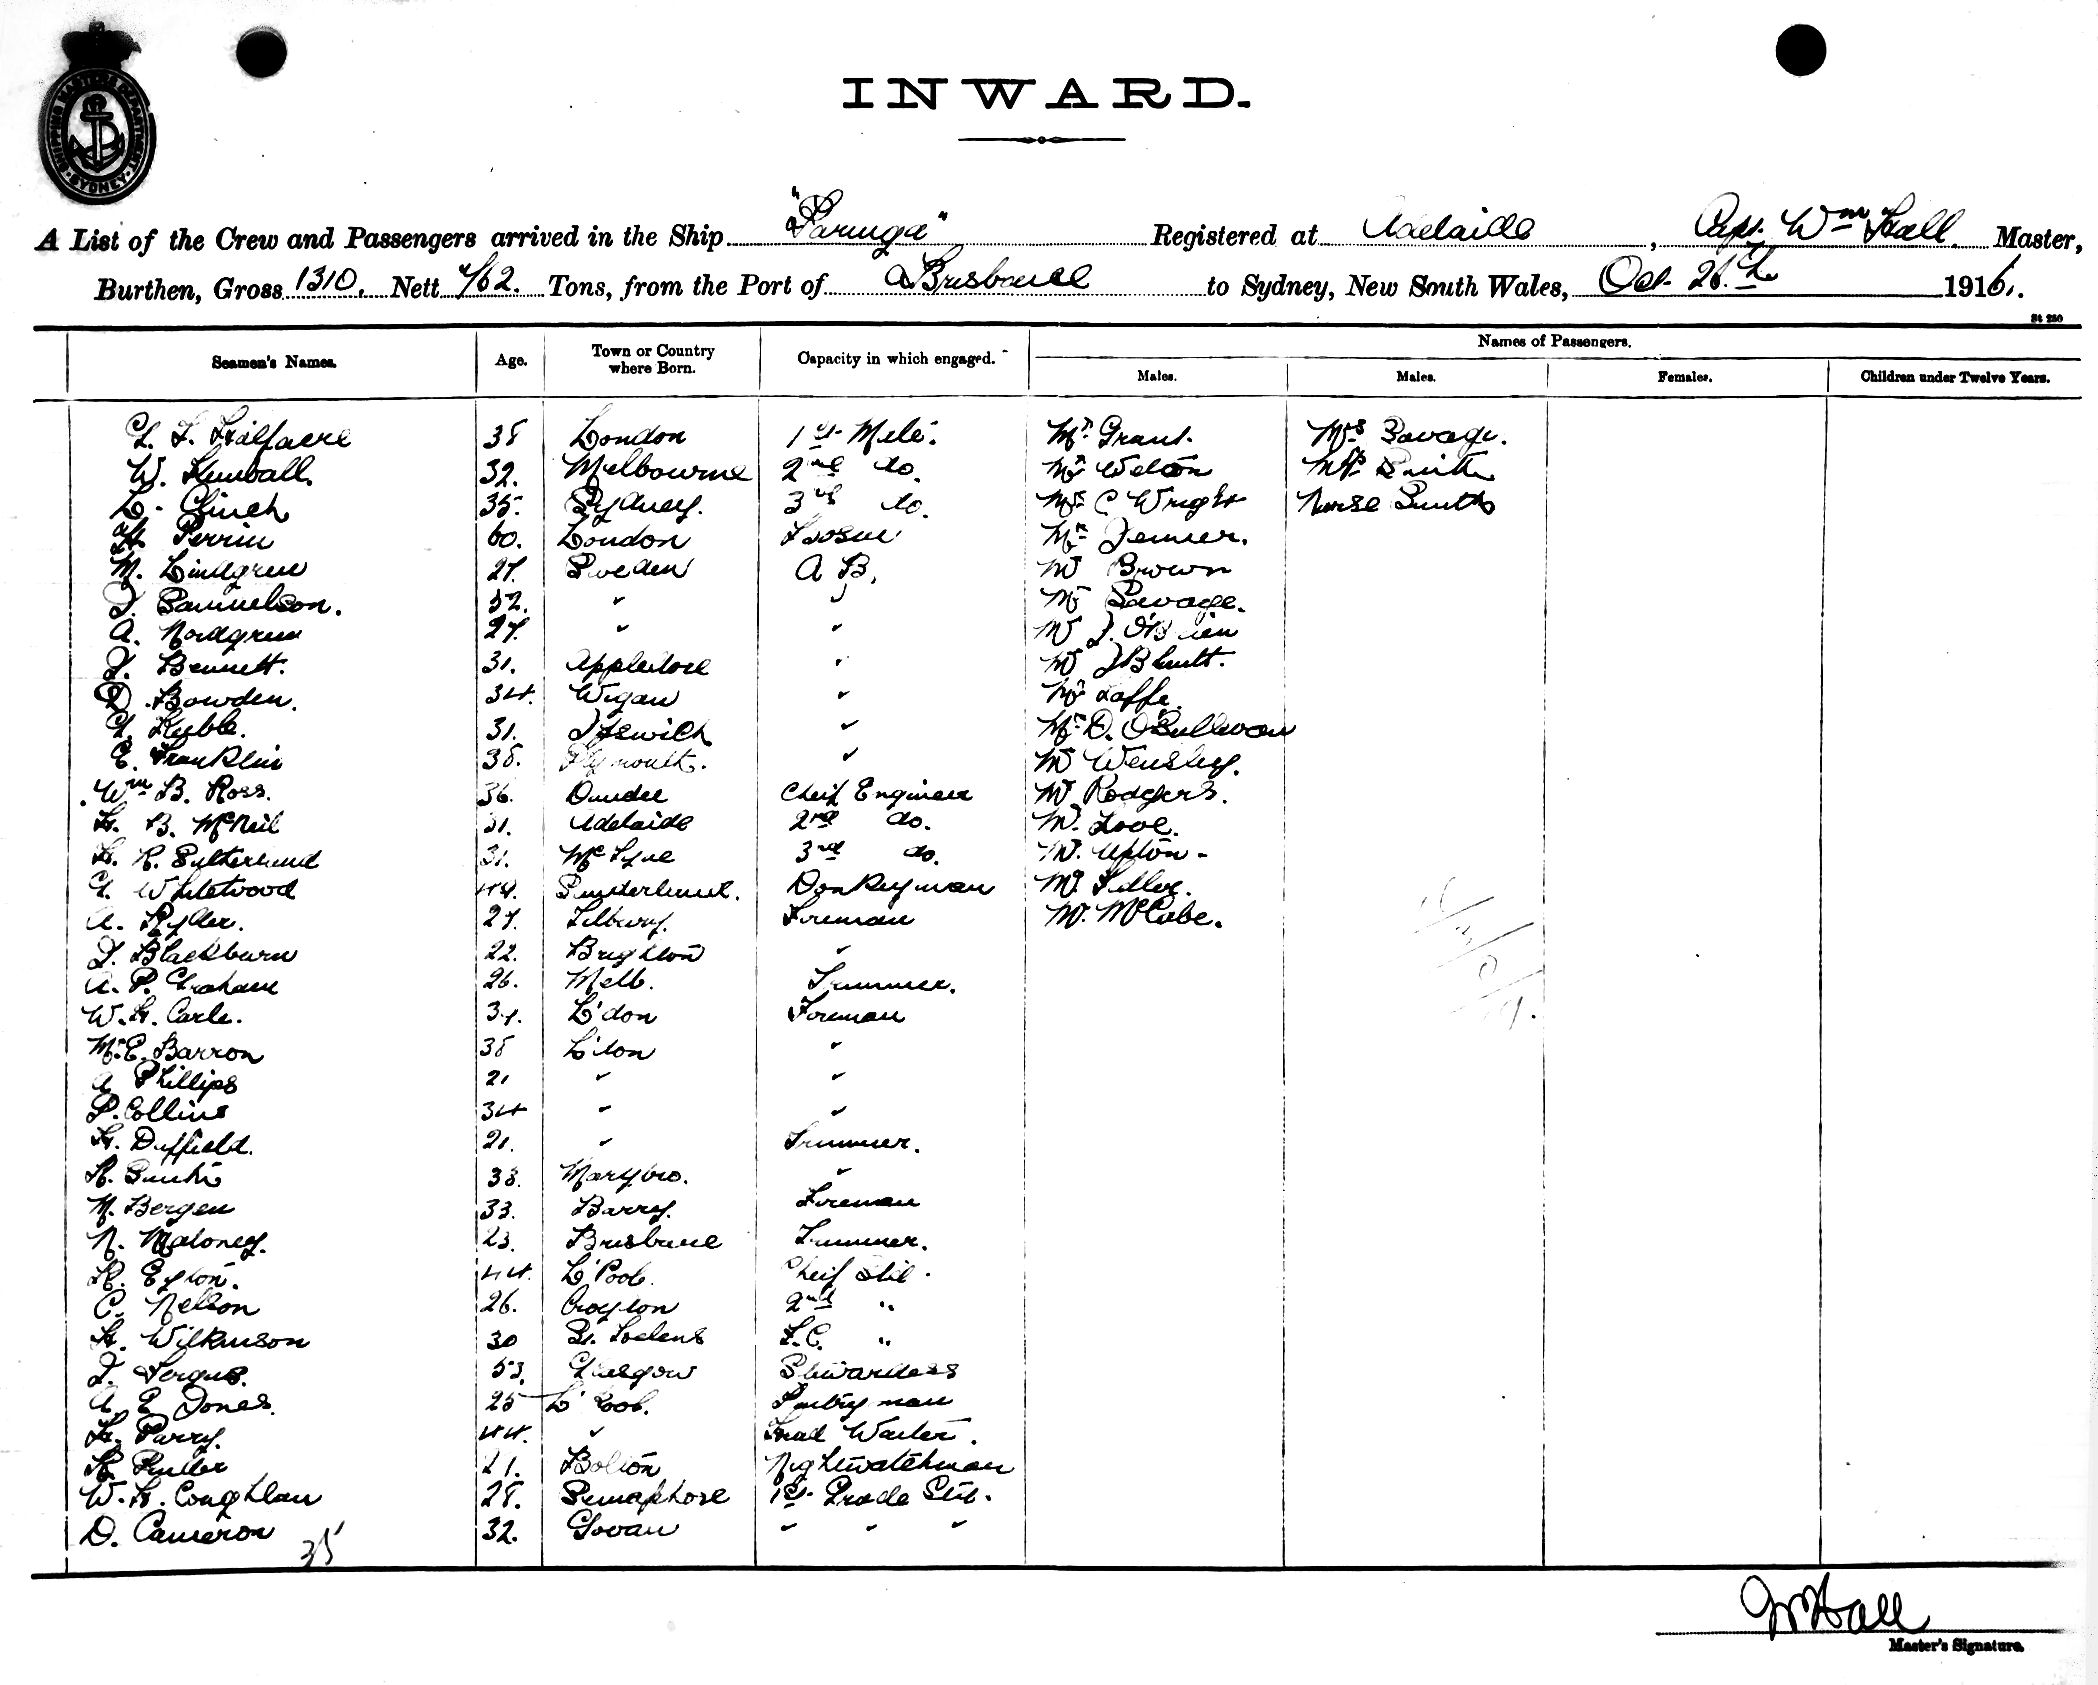 SHIPPING MASTERS DEPARTMENT SYDNEY
INWARD.
A List of the Crew and Passengers arrived in the Ship "Paringa" Registered at Adelaide, Capt. Wm Hall. Master,
Burthen, Gross 1310. Nett 462. Tons, from the Port of Brisbane to Sydney, New South Wales, Oct. 26th 1916.
St 250
Seamen's Names. Age. Town or Country where Born. Capacity in which engaged. Names of Passengers.
Males. Males. Females. Children under Twelve Years.
G. H. Halfacre 38 London 1st Mate. Mr Grant. Mrs Savage.
W. Kimball. 32. Melbourne 2nd do. Mr Welton Mrs Smith
L. Clinch 35. Sydney. 3rd do. Mr C Wright Nurse Smith
H. Perrin 60. London Bosun Mr Jenner.
M. Lindgren 27. Sweden A B, Mr Brown
J. Samuelson. 52. " " Mr Savage.
A. Nordgren 27. " " Mr J. O'Brien
J. Bennett. 31. Appledore " Mr J B hutt.
D. Bowden. 34. Wigan " Mr Laffe.
G. Keeble. 31. Ipswich " Mr D. O'Sullivan
E. Franklin 38. Plymouth. " Mr Wensley.
Wm B. Ross. 36. Dundee Cheif Engineer Mr Rodgers.
H. B. McNeil 31. Adelaide 2nd do. Mr. Love.
H. R. Sutherland 31. 3rd do. Mr. Upton.
G. Whitewood 44. Sunderland. Donkeyman Mr Fidler.
A. Ryder. 27. Tilbury. Fireman Mr. McCabe.
J. Blackburn 22. Brighton "
A. P. Graham 26. Melb. Trimmer.
W. H. Carle. 37. L'don Fireman
Mc.E. Barron 38 L'don "
A Phillips 21 " "
P. Collins 34 " "
H. Duffield. 21. " Trimmer.
R. Smith 38. Marybro. "
M. Bergen 33. Barry. Fireman
N. Maloney. 23. Brisbane Trimmer.
R. Eyton. 44. L'Pool. Cheif Std.
C. Nelson 26. Croydon 2nd "
H. Wilkinson 30 St. Helens F.C. "
J. Fergus. 53. Glasgow Stewardess
A E Jones. 25 L'Pool. Pantry man
H. Parry. 44. " Head Waiter.
R Fuller 21. Bolton Nightwatchman
W. H. Coughlan 28. Semaphore 1st Grade Std.
D. Cameron 32. Govan " " "
35
WHall
Master's Signature.